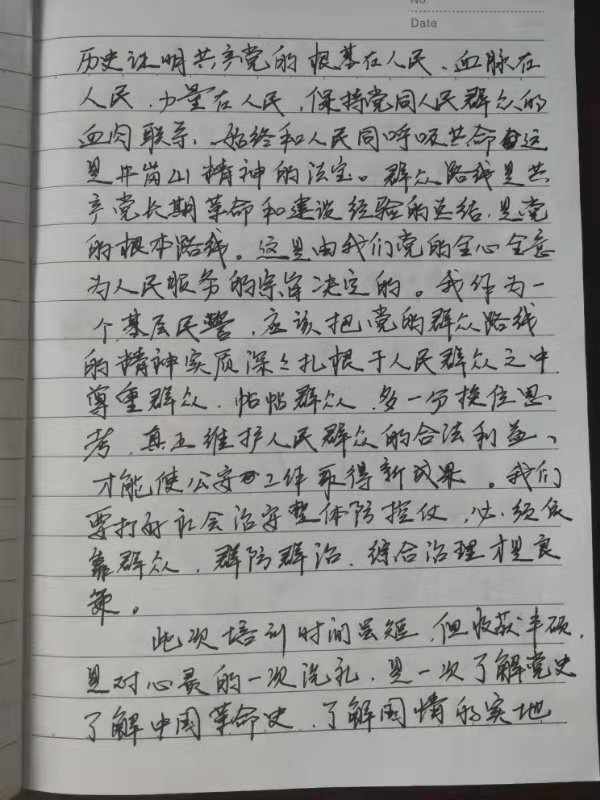 No.
Date
历史证明共产党的根基在人民、血脉在
人民,力量在人民,保持党同人民群众的
血肉联系,始终和人民同呼吸共命运
是井岗山精神的法宝。群众路线是共
产党长期革命和建设经验的总结,是党
的根本路线。这是由我们党的全心全意
为人民服务的宗旨决定的。我作为一
个基层民警,应该把党的群众路线
的精神实质深々扎根于人民群众之中
尊重群众,帖帖群众,多一分换位思
考,真正维护人民群众的合法利益、
才能使公安工作取得新成果。我们
要打好社会治安整体防控仗,必须依
靠群众,群防群治、综合治理才是良
策。
此次培训时间虽短,但收获丰硕,
是对心灵的一次洗礼,是一次了解党史
了解中国革命史,了解国情的实地